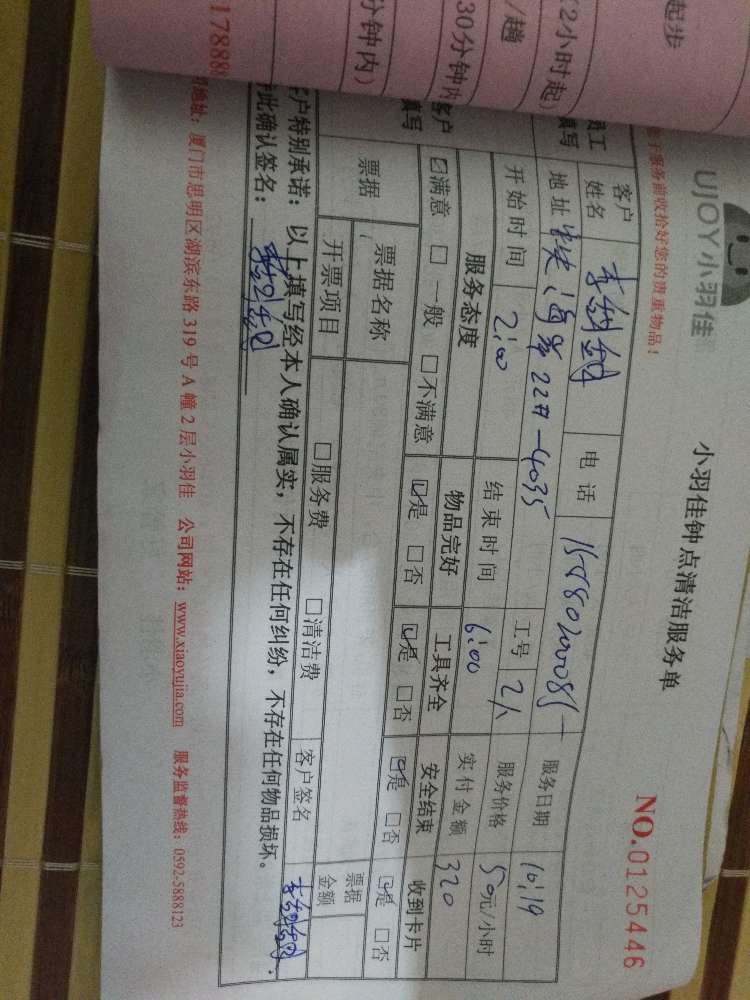 起步
(2小时起)
/趟
30分钟内
分钟内)
17888
UJOY小羽佳
小羽佳钟点清洁服务单
NO.0125446
服务前收拾好您的贵重物品！
员工填写
客户姓名
电话
服务日期 10.19
地址 22#-4035
工号
服务价格 50元/小时
开始时间 2:00 结束时间 6:00 实付金额 320
客户填写
服务态度 物品完好 工具齐全 安全结束 收到卡片
☑满意 □一般 □不满意 ☑是 □否 ☑是 □否 ☑是 □否 ☑是 □否
票据
票据名称
票据金额
开票项目 □服务费 □清洁费 客户签名
客户特别承诺：以上填写经本人确认属实，不存在任何纠纷，不存在任何物品损坏。
此确认签名：
地址：厦门市思明区湖滨东路319号A幢2层小羽佳 公司网站：www.xiaoyujia.com 服务监督热线：0592-5888123